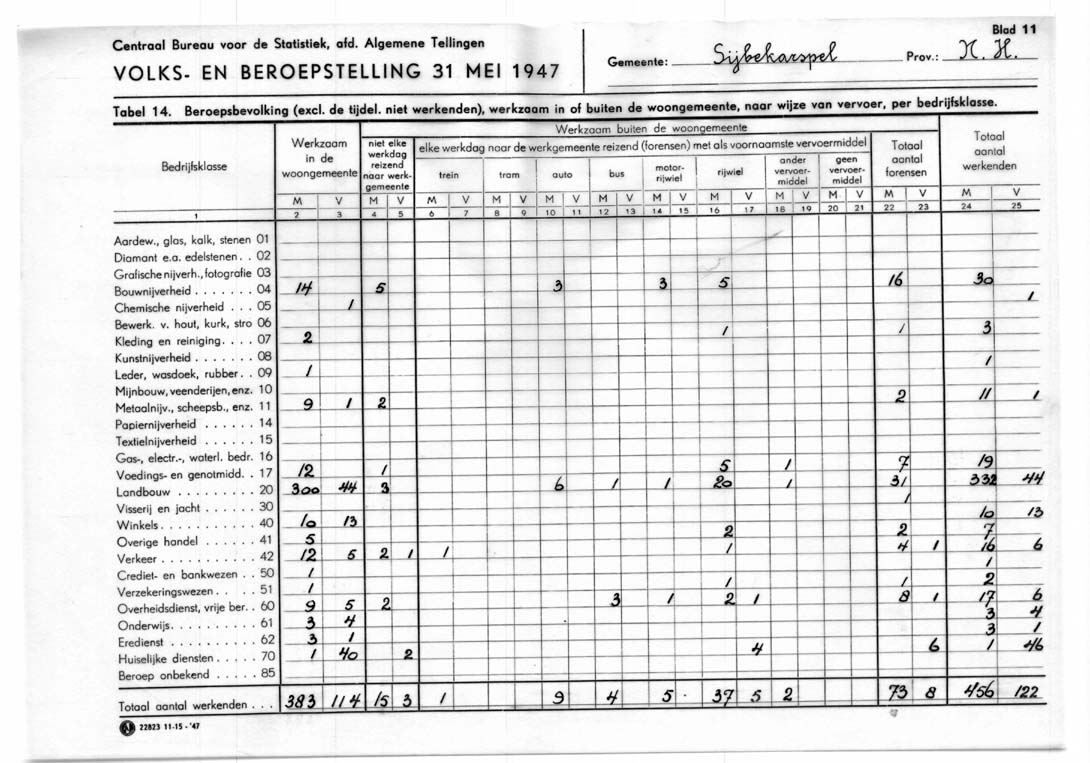 Blad 11
Centraal Bureau voor de Statistiek, afd. Algemene Tellingen
VOLKS- EN BEROEPSTELLING 31 MEI 1947
Gemeente: Sijbekarspel Prov.: N. H.
Tabel 14. Beroepsbevolking (excl. de tijdel. niet werkenden), werkzaam in of buiten de woongemeente, naar wijze van vervoer, per bedrijfsklasse.
Bedrijfsklasse
Werkzaam in de woongemeente
Werkzaam buiten de woongemeente
niet elke werkdag reizend naar werkgemeente
elke werkdag naar de werkgemeente reizend (forensen) met als voornaamste vervoermiddel
trein tram auto bus motor-rijwiel rijwiel ander vervoer-middel geen vervoer-middel
Totaal aantal forensen
Totaal aantal werkenden
M V M V M V M V M V M V M V M V M V M V M V M V
1 2 3 4 5 6 7 8 9 10 11 12 13 14 15 16 17 18 19 20 21 22 23 24 25
Aardew., glas, kalk, stenen 01
Diamant e.a. edelstenen. . 02
Grafische nijverh., fotografie 03
Bouwnijverheid . . . . . . . 04 14 5 3 3 5 16 30
Chemische nijverheid . . . 05 1 1
Bewerk. v. hout, kurk, stro 06
Kleding en reiniging. . . . 07 2 1 1 3
Kunstnijverheid . . . . . . . 08
Leder, wasdoek, rubber. . 09 1 1
Mijnbouw, veenderijen, enz. 10
Metaalnijv., scheepsb., enz. 11 9 1 2 2 11 1
Papiernijverheid . . . . . . 14
Textielnijverheid . . . . . . 15
Gas-, electr.-, waterl. bedr. 16
Voedings- en genotmidd. . 17 12 1 5 1 7 19
Landbouw . . . . . . . . . 20 300 44 3 6 1 1 20 1 31 332 44
Visserij en jacht . . . . . . 30 1
Winkels . . . . . . . . . . . 40 10 13 10 13
Overige handel . . . . . . 41 5 2 2 7
Verkeer . . . . . . . . . . . 42 12 5 2 1 1 1 4 1 16 6
Crediet- en bankwezen . . 50 1 1
Verzekeringswezen. . . . 51 1 1 1 2
Overheidsdienst, vrije ber. . 60 9 5 2 3 1 2 1 8 1 17 6
Onderwijs. . . . . . . . . . 61 3 4 3 4
Eredienst . . . . . . . . . . 62 3 1 3 1
Huiselijke diensten . . . . . 70 1 40 2 4 6 1 46
Beroep onbekend . . . . . 85
Totaal aantal werkenden . . . 383 114 15 3 1 9 4 5 37 5 2 73 8 456 122
22823 11-15 - '47